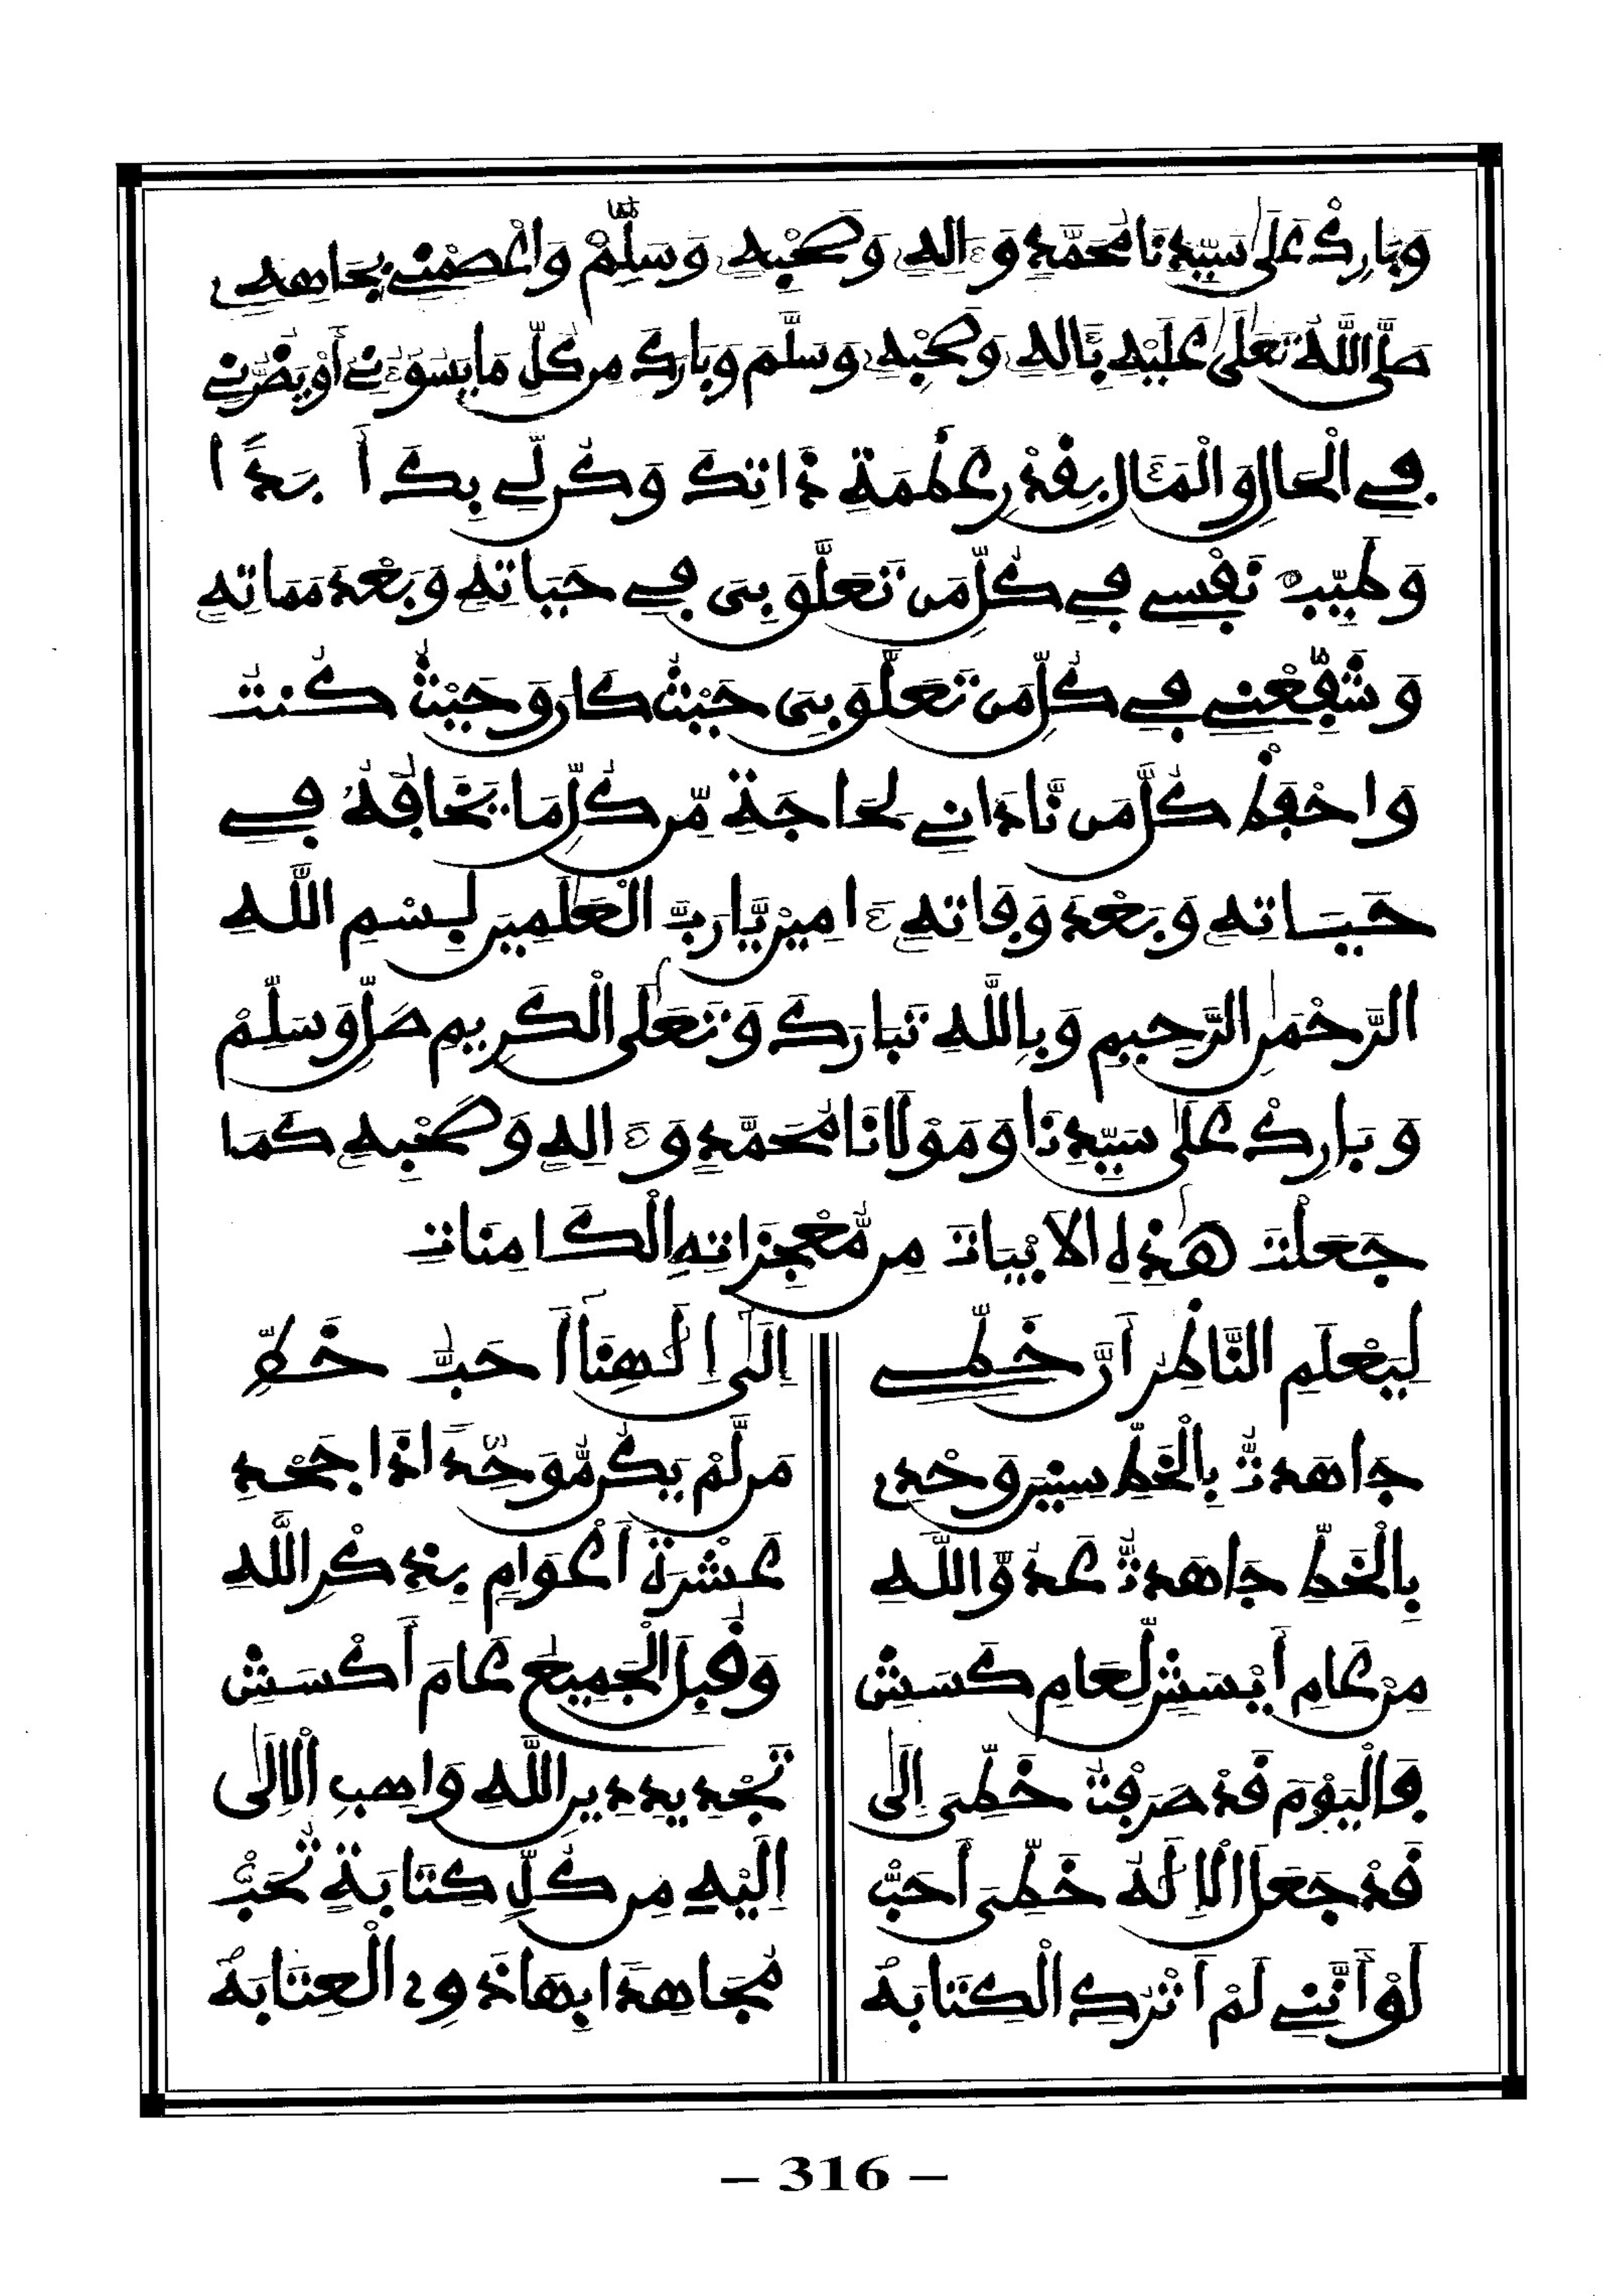 وَبَارِكْ عَلَى سَيِّدِنَا مُحَمَّدٍ وَءَالِهِ وَصَحْبِهِ وَسَلِّمْ وَاعْصِمْنِي بِجَاهِهِ
صَلَّى اللَّهُ تَعَلَى عَلَيْهِ بِئَالِهِ وَصَحْبِهِ وَسَلَّمَ وَبَارَكَ مِن كُلِّ مَا يَسُوءُنِي أَوْ يَضُرُّنِي
فِي الْحَالِ وَالْمَئَالِ بِقَدْرِ عَظَمَةِ ذَاتِكَ وَكُن لِّي بِكَ أَبَدًا
وَطَيِّبْ نَفْسِي فِي كُلِّ مَن تَعَلَّقَ بِيَ فِي حَيَاتِهِ وَبَعْدَ مَمَاتِهِ
وَشَفِّعْنِي فِي كُلِّ مَن تَعَلَّقَ بِيَ حَيْثُ كَانَ وَحَيْثُ كُنتُ
وَاحْفَظْ كُلَّ مَن نَّادَانِي لِحَاجَةٍ مِّن كُلِّ مَا يَخَافُهُ فِي
حَيَاتِهِ وَبَعْدَ وَفَاتِهِ ءَامِينْ يَّا رَبَّ الْعَلَمِينَ بِسْمِ اللَّهِ
الرَّحْمَنِ الرَّحِيمِ وَبِاللَّهِ تَبَارَكَ وَتَعَلَى الْكَرِيمِ صَلِّ وَسَلِّمْ
وَبَارِكْ عَلَى سَيِّدِنَا وَمَوْلَانَا مُحَمَّدٍ وَءَالِهِ وَصَحْبِهِ كَمَا
جَعَلْتَ هَذِهِ الَابْيَاتَ مِن مُّعْجِزَاتِهِ الْكَامِنَاتِ
لِيَعْلَمِ النَّاظِرُ أَنَّ خَطِّي إِلَى إِلَهِنَا أَحَبُّ خَطِّ
جَاهَدتُّ بِالْخَطِّ سِنِينَ وَحْدِي مَن لَّمْ يَكُن مُّوَحِّدًا ذَا جَحْدِ
بِالْخَطِّ جَاهَدتُّ عَدُوَّ اللَّهِ عَشْرَةَ أَعْوَامٍ بِذِكْرِ اللَّهِ
مِنْ عَامِ أَيْسَشٍ لِعَامِ كَسَشِ وَقَبِلَ الْجَمِيعَ عَامَ أَكْسَشِ
فَالْيَوْمَ قَدْ صَرَفْتُ خَطِّيَ إِلَى تَجْدِيدِ دِينِ اللَّهِ وَاهِبِ الْإِلَى
قَدْ جَعَلَ الْإِلَهُ خَطِّيَ أَحَبُّ إِلَيْهِ مِن كُلِّ كِتَابَةٍ تُحَبُّ
لَوْ أَنَّنِي لَمْ أَتْرُكِ الْكِتَابَهْ مُجَاهِدًا بِهَا ذَوِي الْعِتَابَهْ
– 316 –